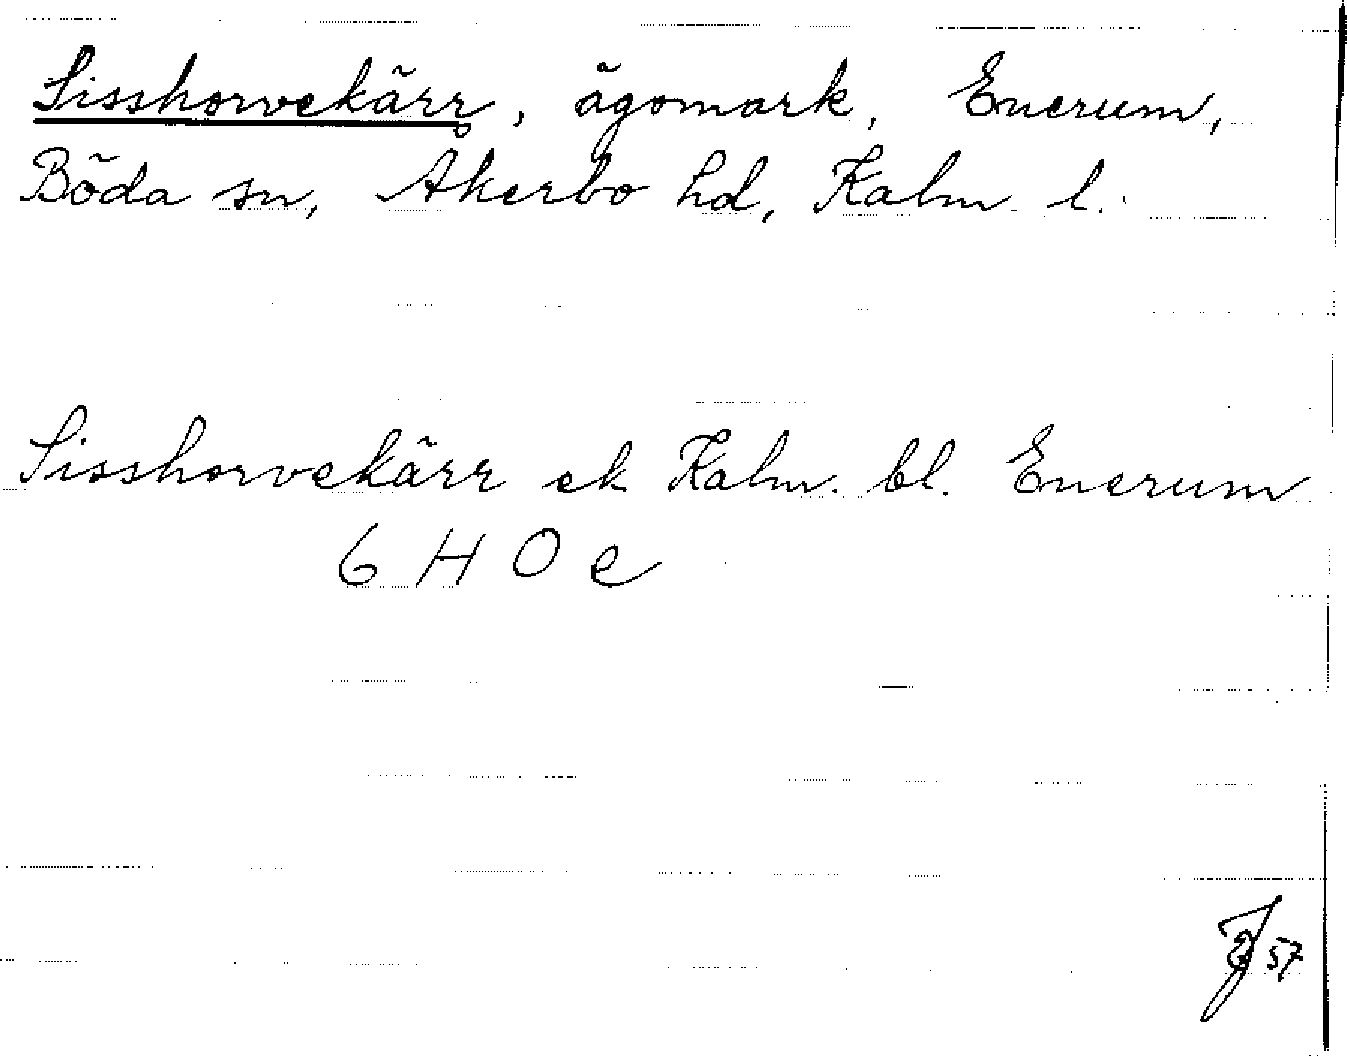 Sisshorvekärr, ägomark, Enerum,
Böda sn, Åkerbo hd, Kalm. l.
Sisshorvekärr ek Kalm. bl. Enerum
6 H 0 e
57